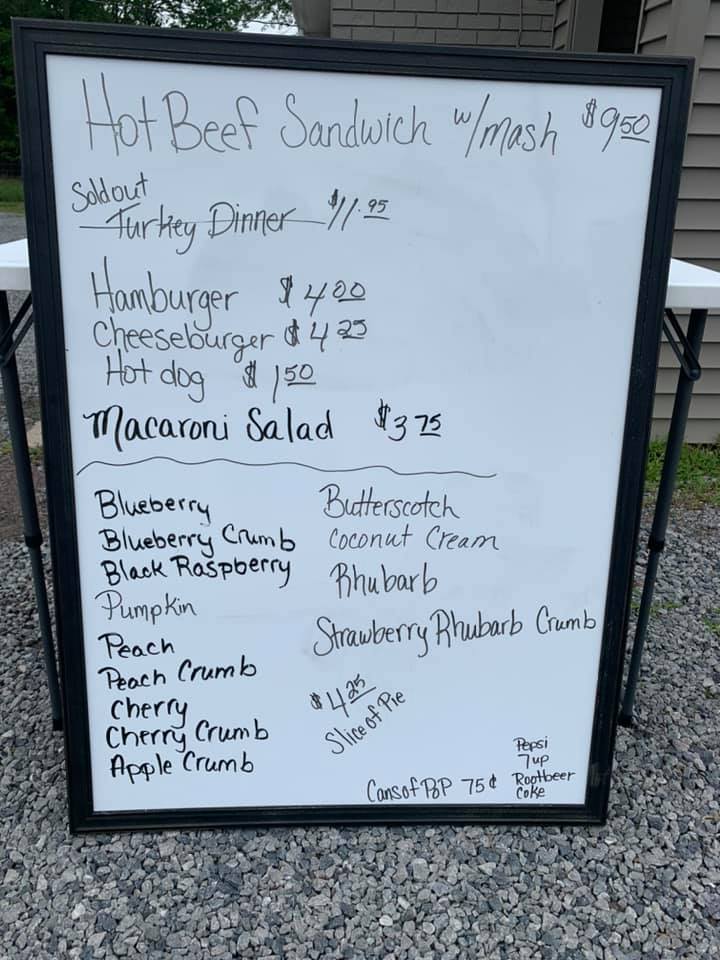 Hot Beef Sandwich w/mash $9 50
Sold out
Turkey Dinner $11.95
Hamburger $4 00
Cheeseburger $4 25
Hot dog $1 50
Macaroni Salad $3 75
Blueberry
Blueberry Crumb
Black Raspberry
Pumpkin
Peach
Peach Crumb
Cherry
Cherry Crumb
Apple Crumb
Butterscotch
Coconut Cream
Rhubarb
Strawberry Rhubarb Crumb
$4 25
Slice of Pie
Cans of POP 75¢
Pepsi
7up
Rootbeer
Coke